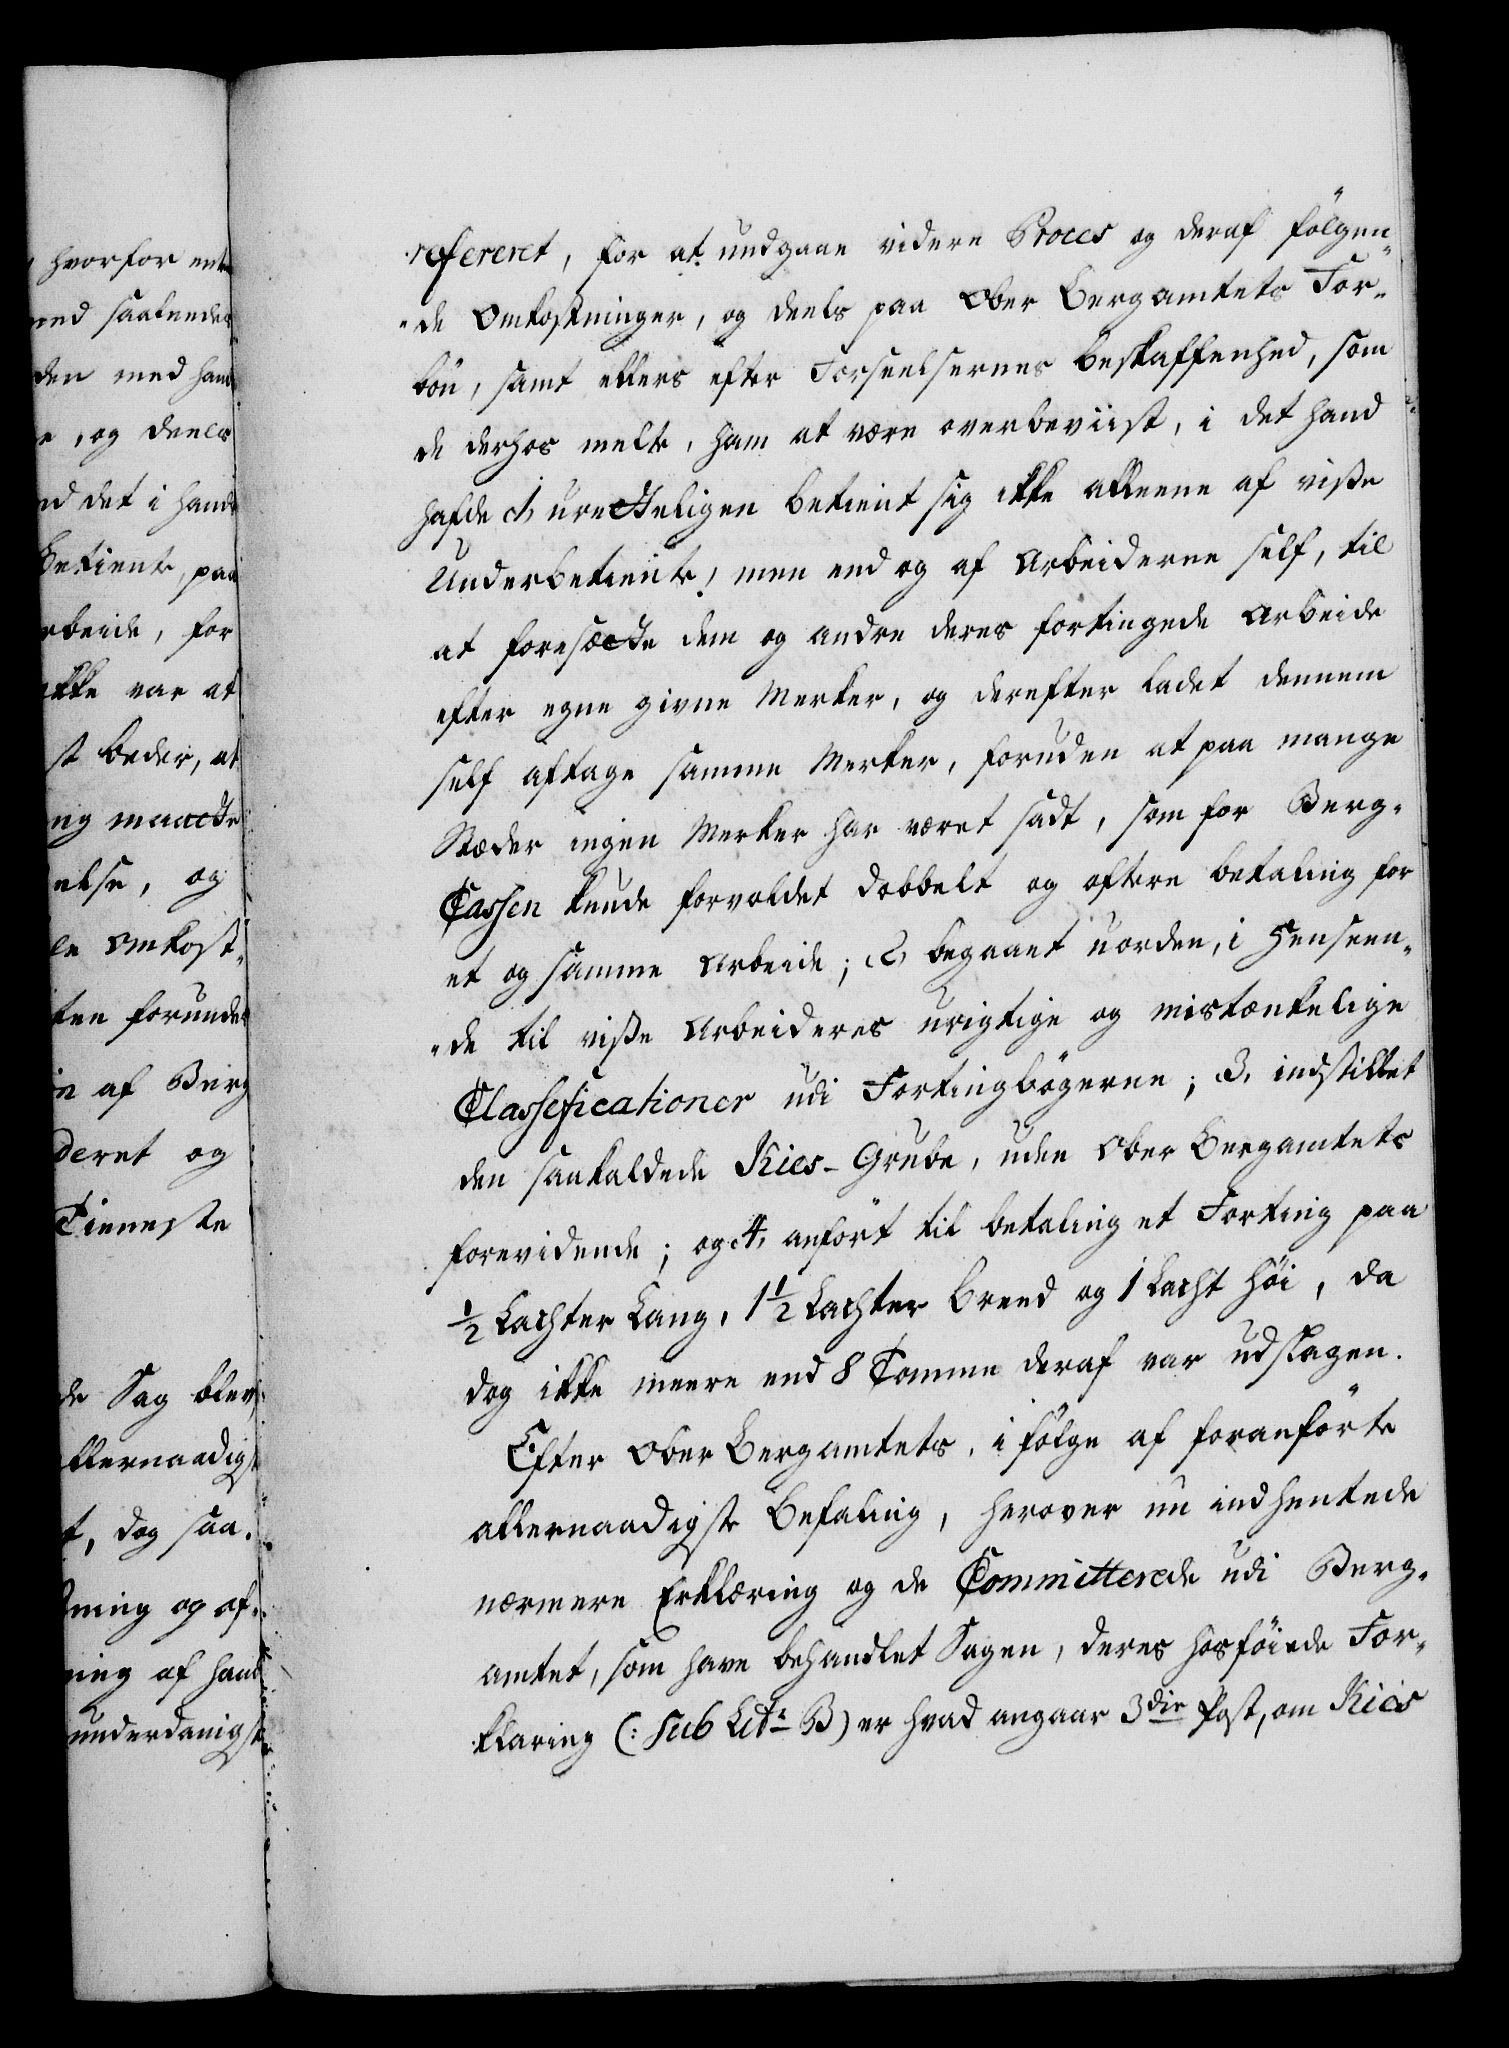 hvorfor ent
med saaleedes
den med hand
e, og deels
nd det i hand
Betiente, paa
rbeide, for
ikke var at
st beder, at
ng maatte
else, og
le Omkost-
ten forunder
in af Berg
deret og
Tieneste
de Sag blev,
allernaadigst
t, dog saa-
ning og af-
ning af hand
underdanigst
refereret, for at undgaae videre Proces og deraf fölgen-
-de Omkostninger, og deels paa Ober Bergamtets For-
bön, samt ellers efter Forseelsernes beskaffenhed, som
de derhos melte, ham at være overbeviist, i det hand
hafde 1, urætteligen betient sig ikke alleene af visse
Underbetiente, men end og af Arbeiderne self, til
at foresætte dem og andre deres fortingede Arbeide
efter egne givne Merker, og derefter ladet dennem
self aftage samme Merker, foruden at paa mange
Stæder ingen Merker har været sadt, som for Berg-
Cassen kunde forvoldet dobbelt og oftere betaling for
et og samme Arbeide; 2, begaaet uorden, i Henseen-
-de til visse Arbeideres urigtige og mistænkelige
Classeficationer udi Fortingbögerne; 3, indstillet
den saakaldede Kies-Grube, uden Ober Bergamtets
forevidende; og 4, anfört til betaling et Forting paa
½ Lachter Lang, 1½ Lachter breed og 1 Lacht höi, da
dog ikke meere end 8 Tomme deraf var udslagen.
Efter Ober Bergamtets, i fölge af foranförte
allernaadigste Befaling, herover nu indhentede
nærmere Erklæring og de Committerede udi Berg-
amtet, som have behandlet Sagen, deres hosföiede For-
klaring (: sub Litr. B) er hvad angaar 3die Post, om Kies